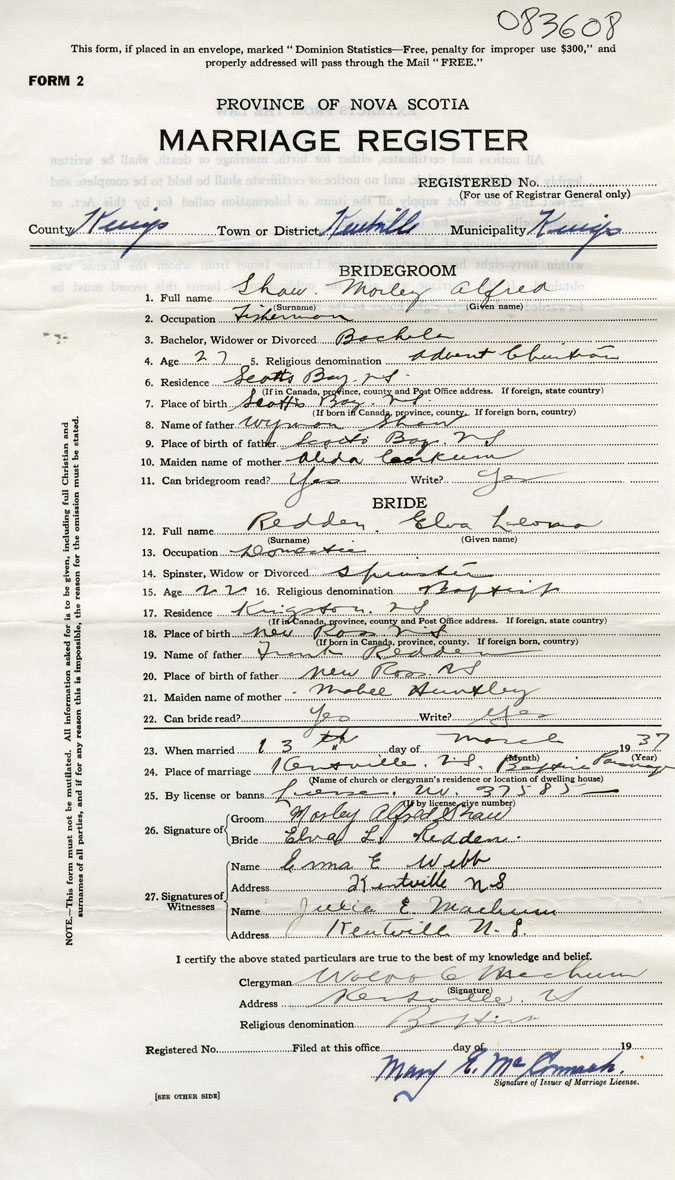 083608
This form, if placed in an envelope, marked "Dominion Statistics—Free, penalty for improper use $300," and
properly addressed will pass through the Mail "FREE."
FORM 2
PROVINCE OF NOVA SCOTIA
MARRIAGE REGISTER
REGISTERED No.
(For use of Registrar General only)
County Kings Town or District Kentville Municipality Kings
BRIDEGROOM
1. Full name Shaw. Morley Alfred
(Surname) (Given name)
2. Occupation Fisherman
3. Bachelor, Widower or Divorced Bachelor
4. Age 27 5. Religious denomination Advent Christian
6. Residence Scotts Bay. NS
(If in Canada, province, county and Post Office address. If foreign, state country)
7. Place of birth Scotts Bay. NS
(If born in Canada, province, county. If foreign born, country)
8. Name of father Wyman Shaw
9. Place of birth of father Scotts Bay. NS
10. Maiden name of mother Alida Corkum
11. Can bridegroom read? Yes Write? Yes
BRIDE
12. Full name Redden. Elva Leoma
(Surname) (Given name)
13. Occupation Domestic
14. Spinster, Widow or Divorced Spinster
15. Age 22 16. Religious denomination Baptist
17. Residence Kingston. NS
(If in Canada, province, county and Post Office address. If foreign, state country)
18. Place of birth New Ross N.S
(If born in Canada, province, county. If foreign born, country)
19. Name of father Frank Redden
20. Place of birth of father New Ross NS
21. Maiden name of mother Mabel Huntley
22. Can bride read? Yes Write? Yes
23. When married 13th day of March 1937
(Month) (Year)
24. Place of marriage Kentville, N.S. Baptist Parsonage
(Name of church or clergyman's residence or location of dwelling house)
25. By license or banns License. No. 37585
(If by license, give number)
26. Signature of
Groom Morley Alfred Shaw
Bride Elva L. Redden.
27. Signatures of Witnesses
Name Erma E Webb
Address Kentville NS
Name Julia E. Machum
Address Kentville N.S.
I certify the above stated particulars are true to the best of my knowledge and belief.
Clergyman C Machum
(Signature)
Address Kentville. NS
Religious denomination Baptist
Registered No. Filed at this office day of 19
Mary E. McCormack.
Signature of Issuer of Marriage License.
[SEE OTHER SIDE]
NOTE.—This form must not be mutilated. All information asked for is to be given, including full Christian and
surnames of all parties, and if for any reason this is impossible, the reason for the omission must be stated.